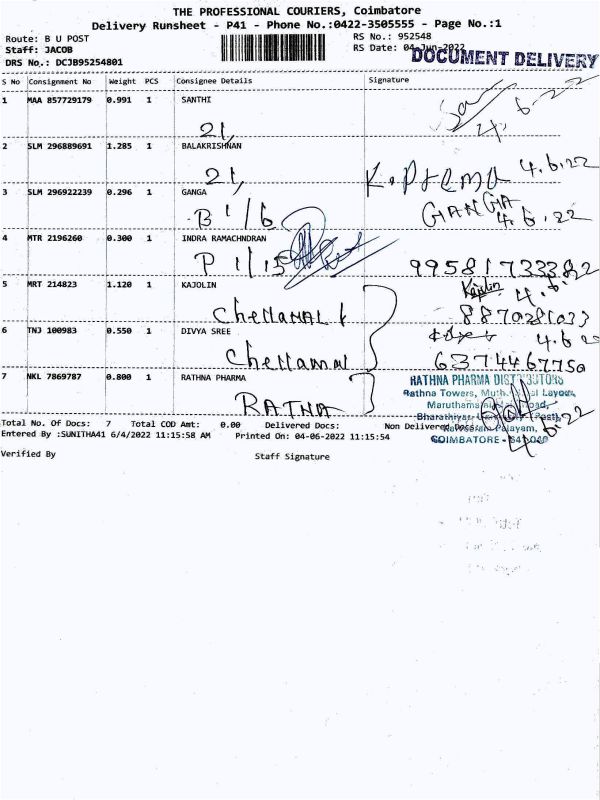 THE PROFESSIONAL COURIERS, Coimbatore
Delivery Runsheet - P41 - Phone No.:0422-3505555 - Page No.:1
Route: B U POST
RS No.: 952548
Staff: JACOB
RS Date: 04-Jun-2022
DRS No.: DCJB95254801
DOCUMENT DELIVERY
S No Consignment No Weight PCS Consignee Details Signature
1 MAA 857729179 0.991 1 SANTHI
4.6.22
21,
2 SLM 296889691 1.285 1 BALAKRISHNAN
21, K. Prema 4.6.22
3 SLM 296922239 0.296 1 GANGA
B 1/6 GANGA 4.6.22
4 MTR 2196260 0.300 1 INDRA RAMACHNDRAN
P 1/15
5 MRT 214823 1.120 1 KAJOLIN Kajolin 4.6.22
Chellamal 8870281033
6 TNJ 100983 0.550 1 DIVYA SREE 4.6.22
Chellamal 6374467750
7 NKL 7869787 0.800 1 RATHNA PHARMA
RATNA
RATHNA PHARMA DISTRIBUTORS
Rathna Towers, Layout,
Road,
Bharathiyar Post,
COIMBATORE - 641046
4.6.22
Total No. Of Docs: 7 Total COD Amt: 0.00 Delivered Docs: Non Delivered Docs:
Entered By :SUNITHA41 6/4/2022 11:15:58 AM Printed On: 04-06-2022 11:15:54
Verified By Staff Signature